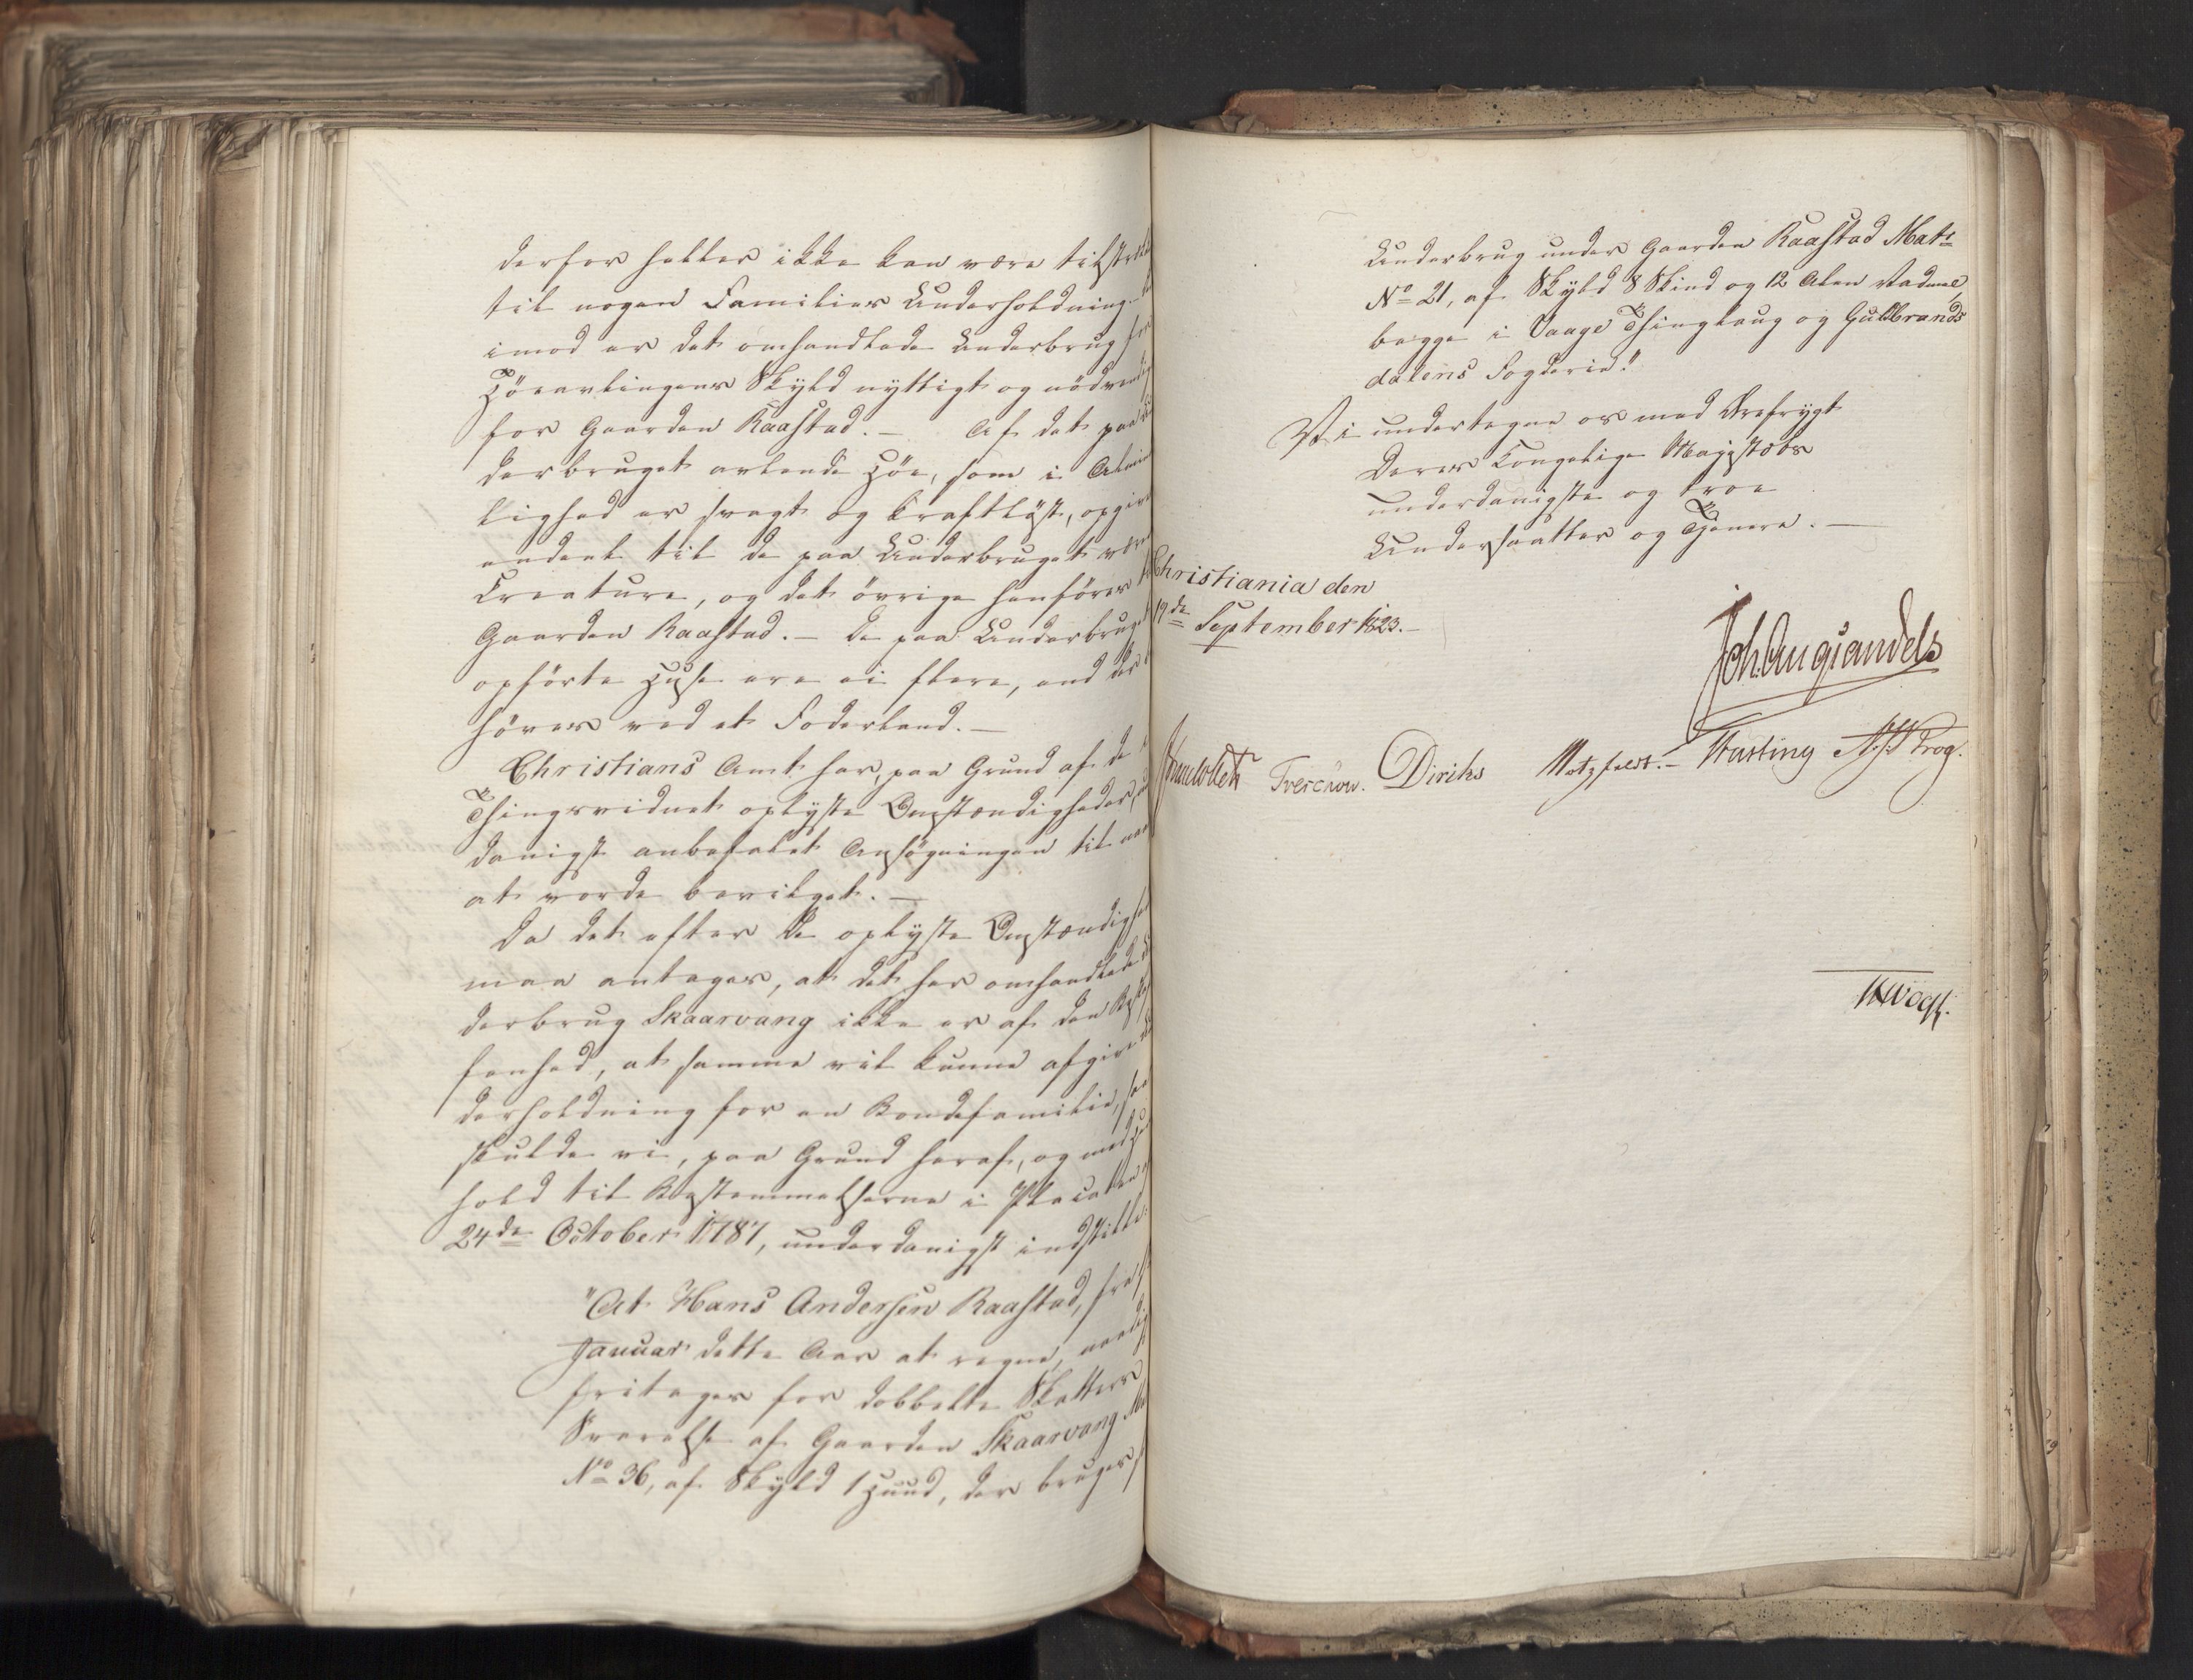 derfor heller ikke kan være tilstræk
til nogen Families Underholdning.
imod er det omhandlede Underbrug for
Höeavlingens Skyld nyttigt og nödvendig
for Gaarden Raastad. – Af det paa Un
derbruget avlende Höe, som i Almin
lighed er svagt og kraftlöst, opgives
endeel til de paa Underbruget være
Creature, og det övrige henföres til
Gaarden Raastad. – De paa Underbruget
opförte Huse ere ei flere, end der be
höves ved et Foderland. –
Christians Amt har, paa Grund af de i
Thingsvidnet oplyste Omstændigheder, un
danigst anbefalet Ansögningen til naa
at vorde bevilget. –
Da det efter de oplyste Omstændighed
maa antages, at det her omhandlede Un
derbrug Skaarvang ikke er af den Beskaf
fenhed, at samme vil kunne afgive Un
derholdning for en Bondefamilie, saa
skulde vi, paa Grund heraf, og med Hen
hold til Bestemmelserne i Placaten
24de October 1787, underdanigst indstille:
"At Hans Andersen Raastad, fra 1
Januar dette Aar at regne, naadig
fritages for dobbelte Skatters
Svarelse af Gaarden Skaarvang Ma
No 36, af Skyld 1 Huud, der bruges s
Underbrug under Gaarden Raastad Matr
No 21, af Skyld 8 Skind og 12 Alen Vadmel,
begge i Vaage Thinglaug og Guldbrands
dalens Fogderie."
Vi undertegne os med Ærefrygt
Deres Kongelige Majestæts
underdanigste og troe
Undersaatter og Tjenere. –
Christiania den
19de September 1823. –
Joh. Aug. Sandels
Sommerhielm Treschow. Diriks Motzfeldt. – Hasting A. S. Krog.
Vogt.